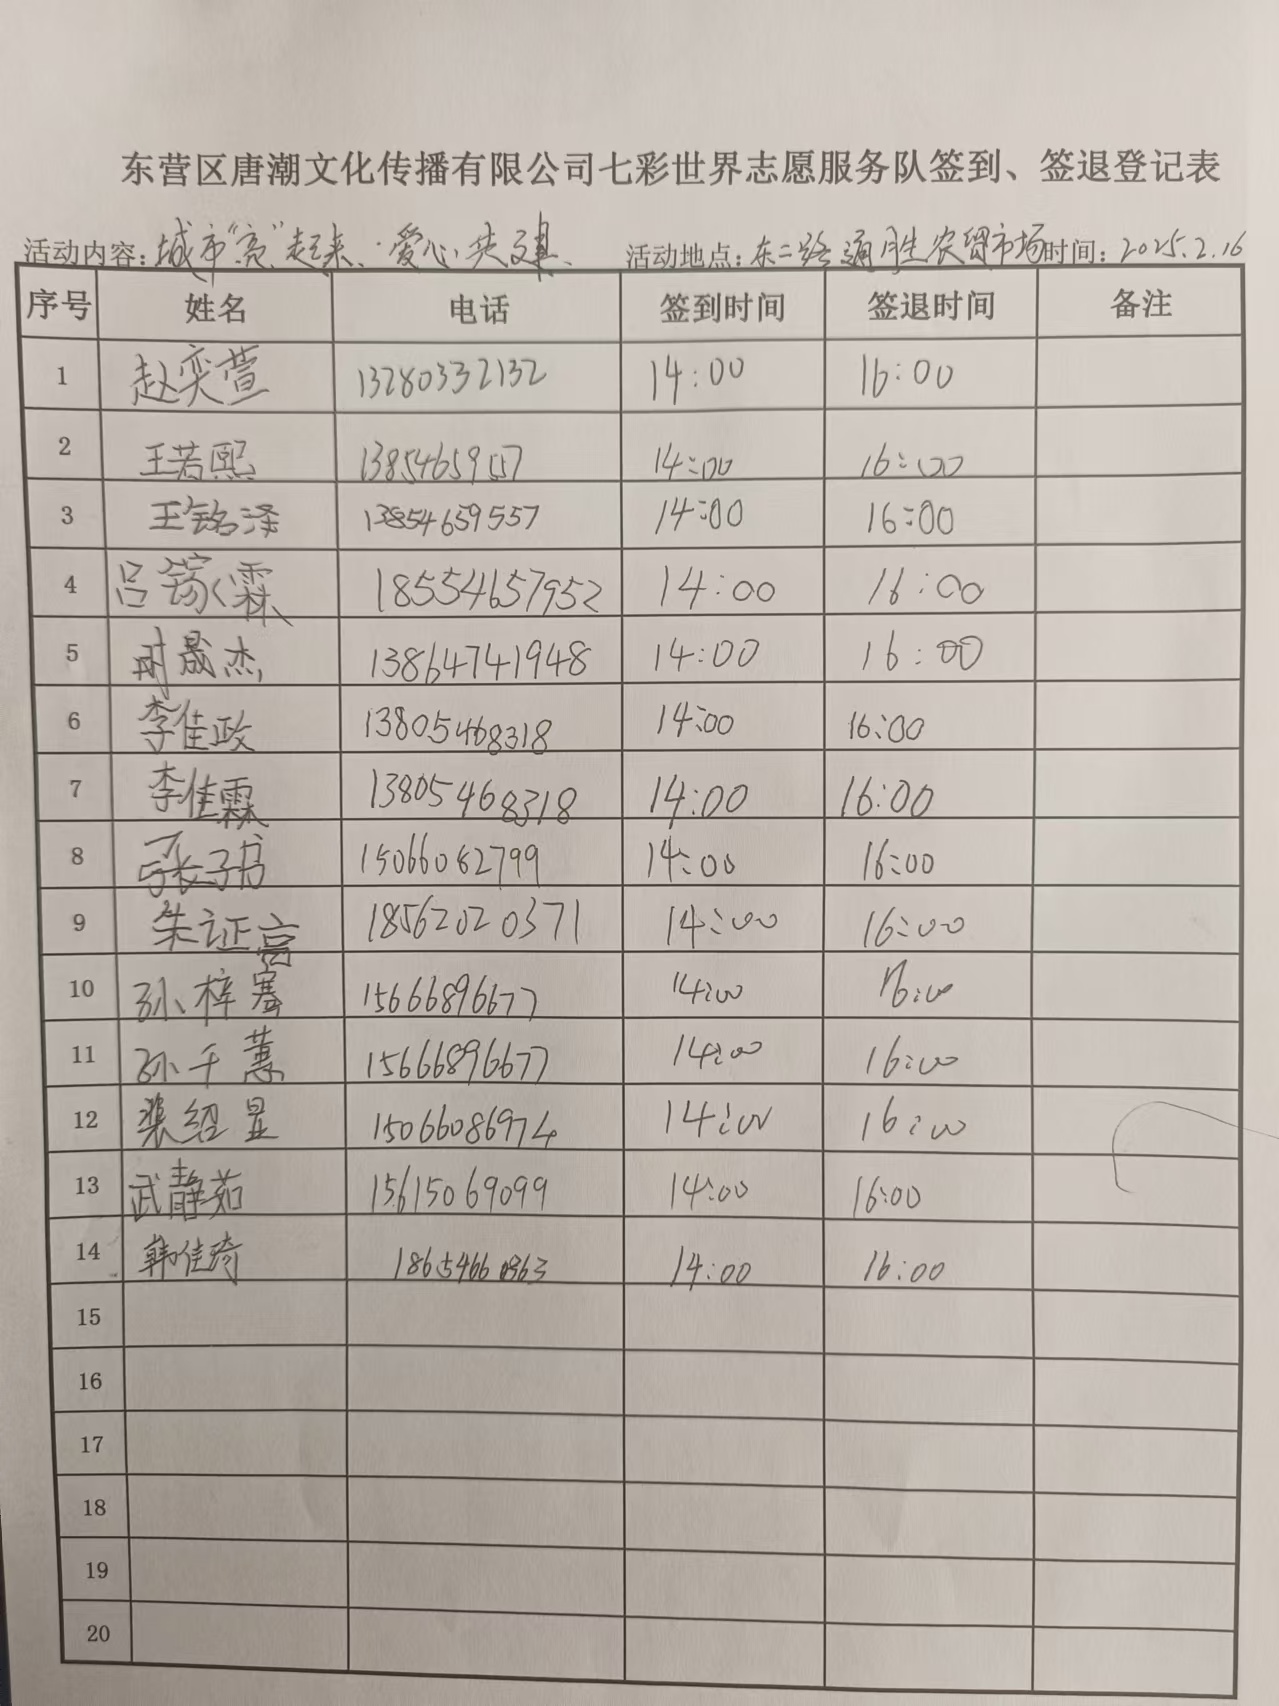 东营区唐潮文化传播有限公司七彩世界志愿服务队签到、签退登记表
活动内容：城市“亮”起来、爱心共文具 活动地点：东二路通胜农贸市场时间：2025.2.16
序号 姓名 电话 签到时间 签退时间 备注
1 赵奕萱 13280332132 14:00 16:00
2 王若熙 13854659557 14:00 16:00
3 王铭泽 13854659557 14:00 16:00
4 吕镓霖 18554657952 14:00 16:00
5 时晟杰 13864741948 14:00 16:00
6 李佳政 13805468318 14:00 16:00
7 李佳霖 13805468318 14:00 16:00
8 张子书 15066082799 14:00 16:00
9 朱证亮 18562020371 14:00 16:00
10 孙梓骞 15666896677 14:00 16:00
11 孙千蕙 15666896677 14:00 16:00
12 裴绍显 15066086974 14:00 16:00
13 武静茹 15615069099 14:00 16:00
14 韩佳琦 18654660363 14:00 16:00
15
16
17
18
19
20